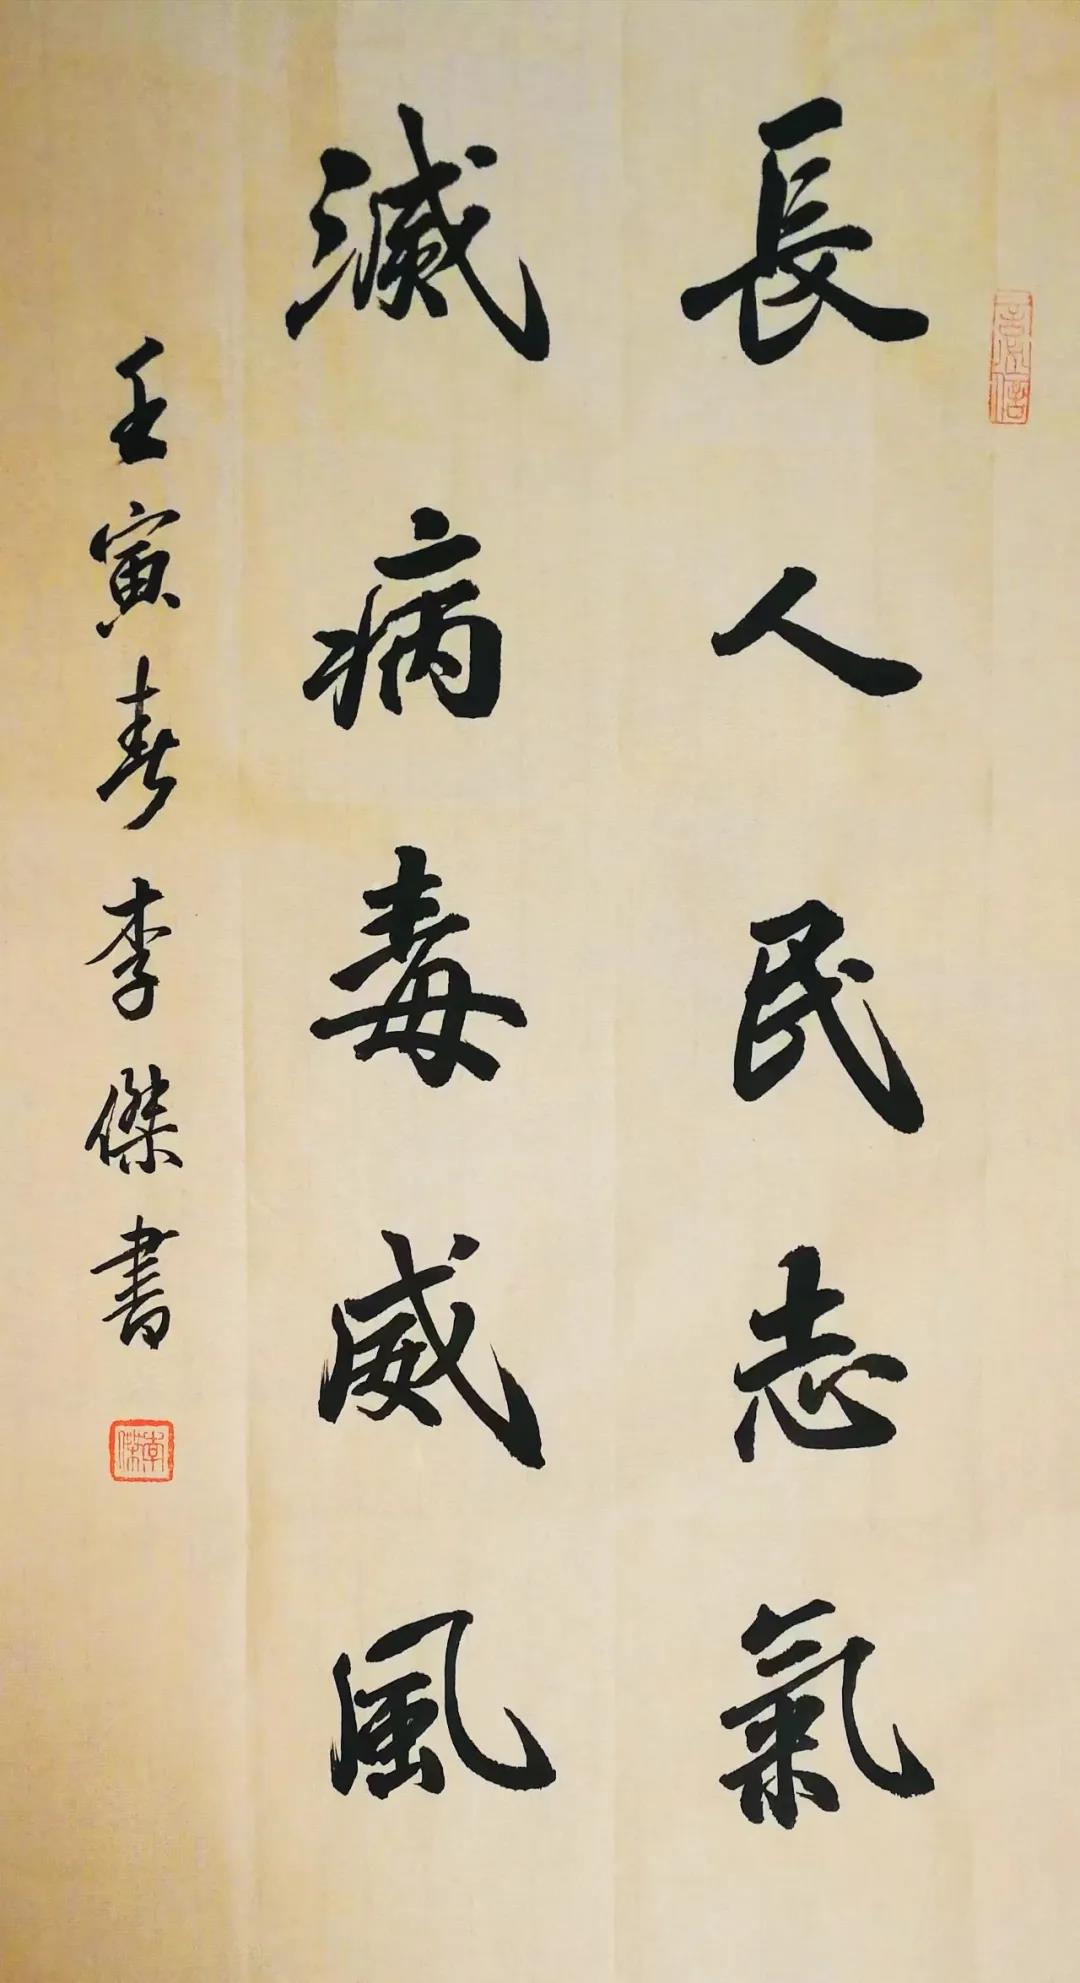 長人民志氣
滅病毒威風
壬寅春李傑書
李傑